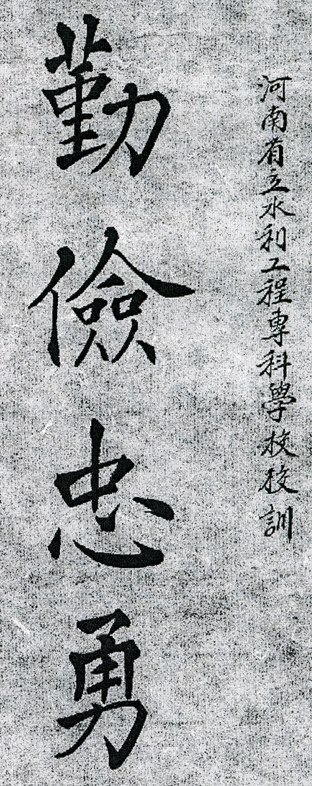 河南省立水利工程專科學校校訓
勤儉忠勇